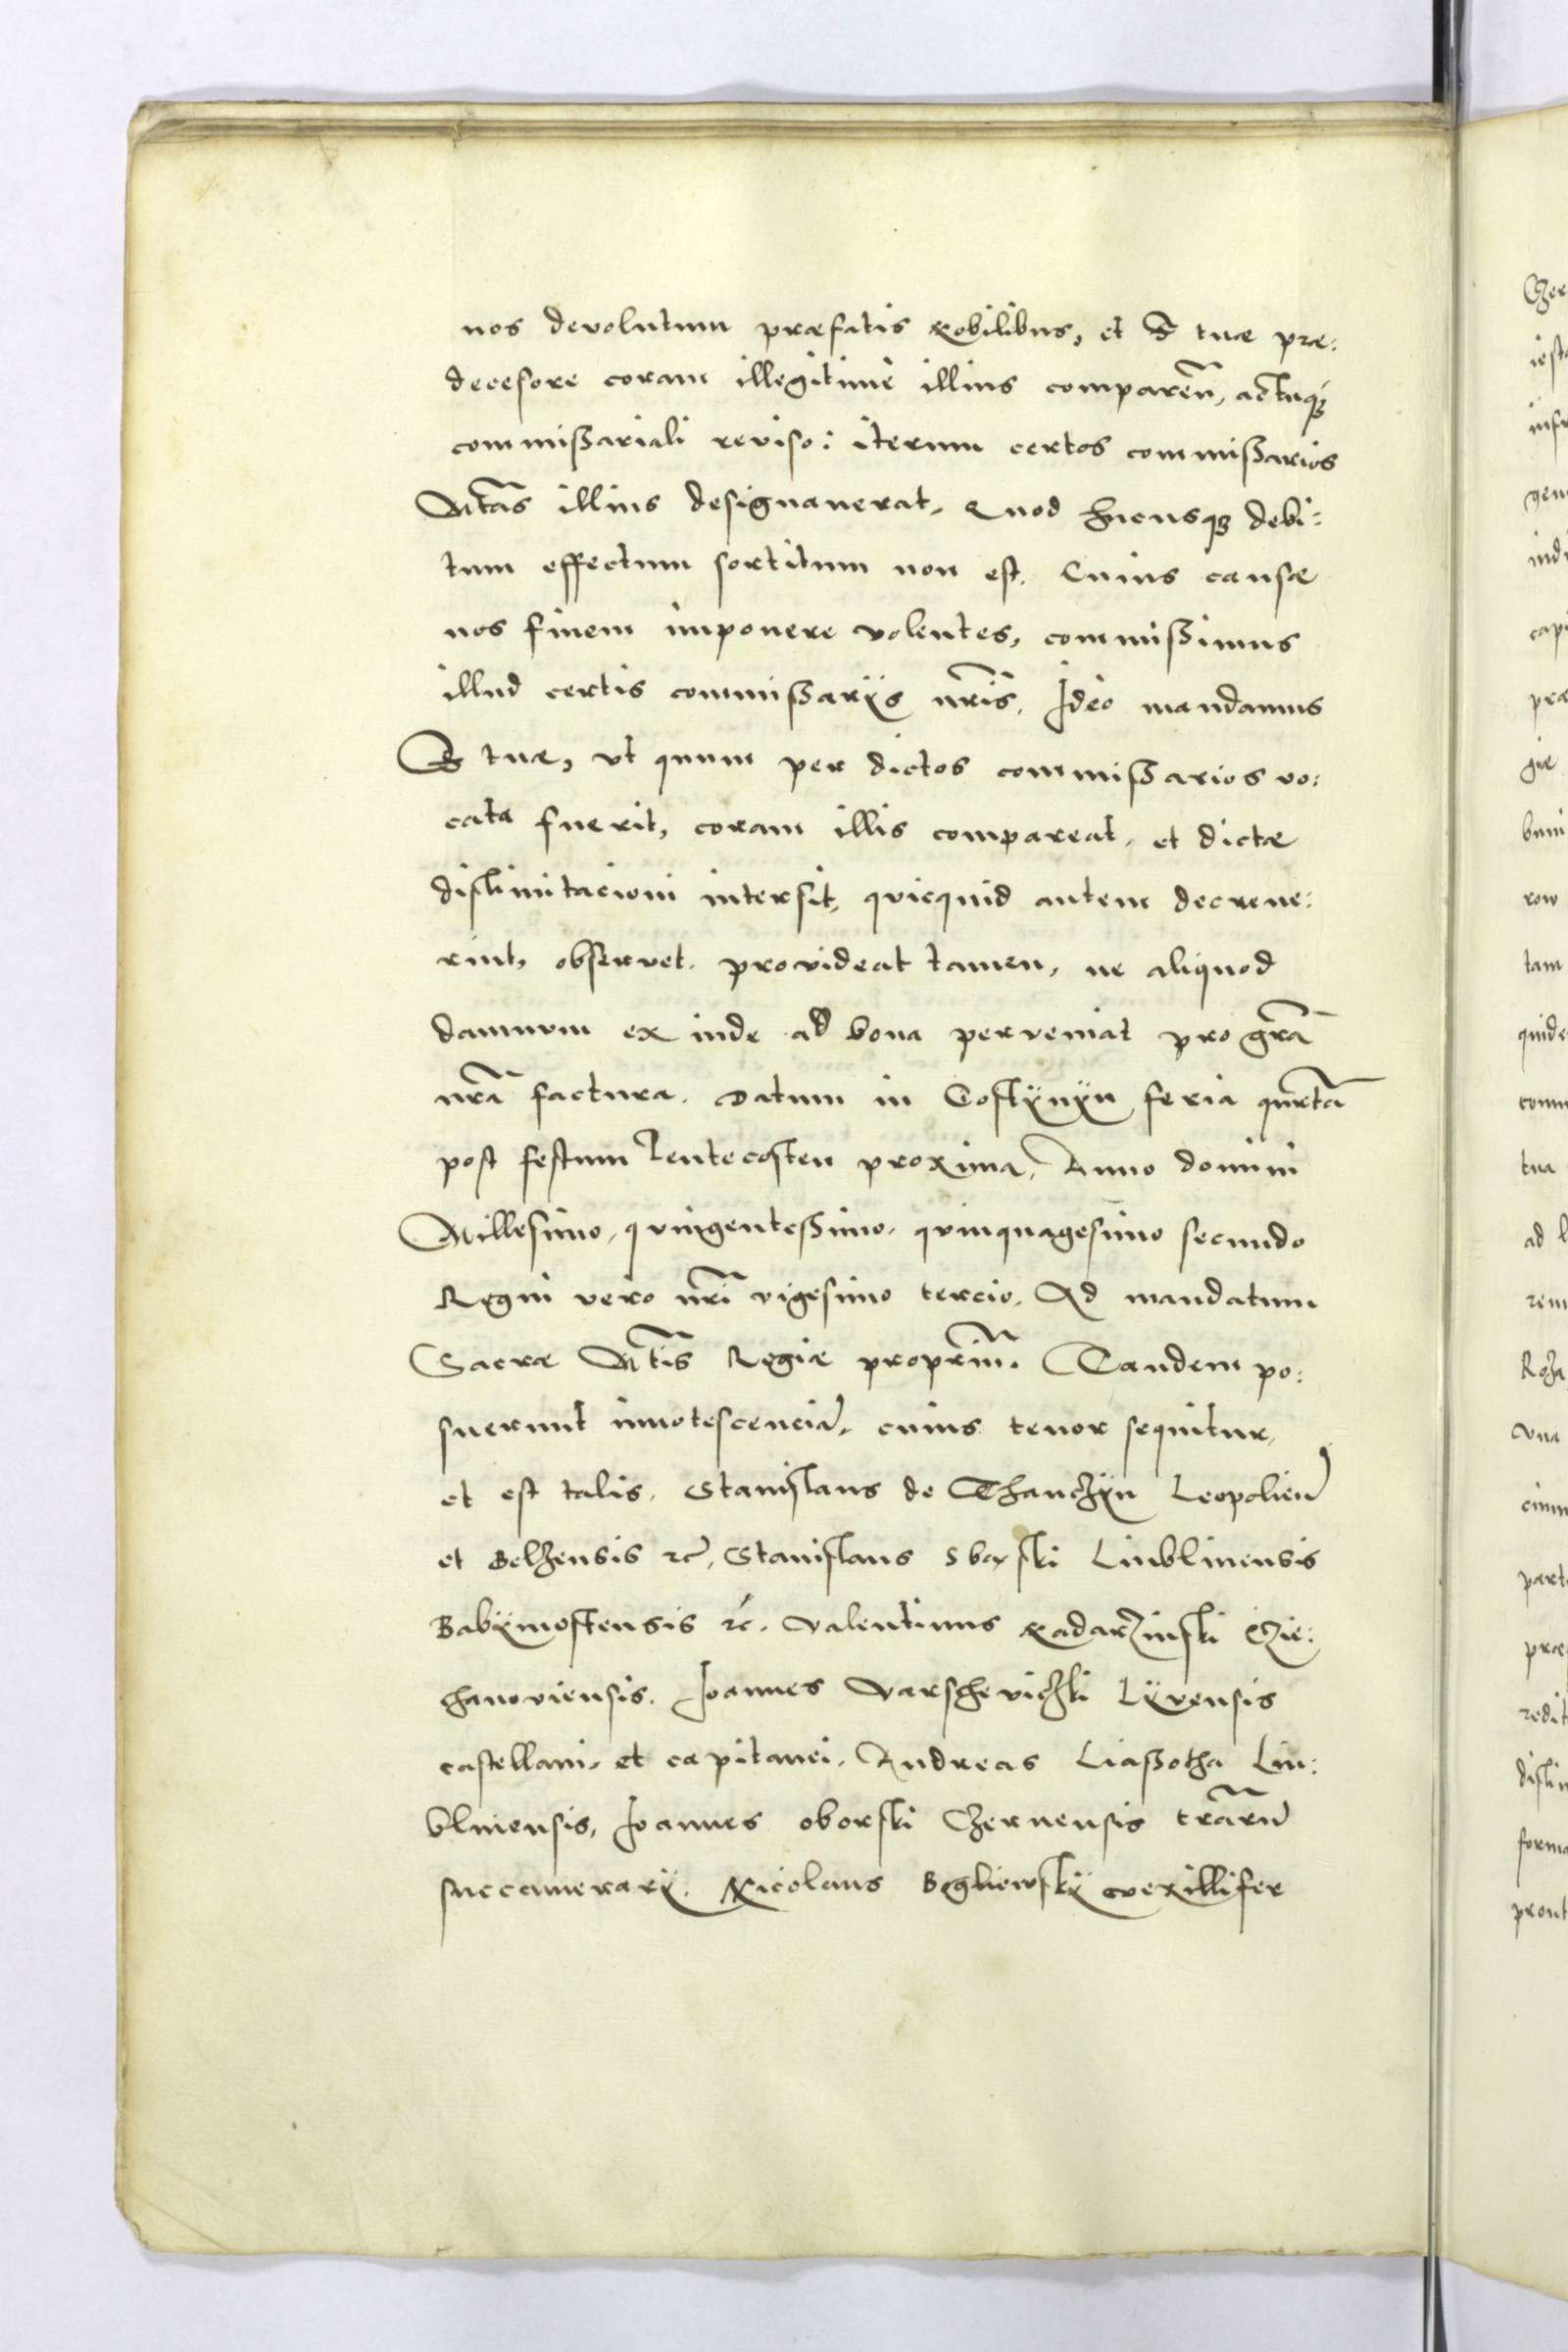 nos devolutum præfatis Nobilibus, et S tuæ præ:
decesore coram illegitime illius compareñ, actuq3
commißariali reviso: iterum certos commißarios
Mtãs illius designauerat. Quod hucusq3 debi:
tum effectum sortitum non est. Cuius causæ
nos finem imponere volentes, commißimus
illud certis commißarÿs nr̃is. Ideo mandamus
S tuæ, vt quum per dictos commißarios vo:
cata fuerit, coram illis compareat, et dictæ
dislimitacioni intersit, quicquid autem decreue:
rint, observet. provideat tamen, ne aliquod
damnum ex inde ad bona perveniat pro gr̃a
nr̃a factura. Datum in Costÿnÿn feria qũrta
post festum Pentecosten proxima, Anno domini
Millesimo, quingentessimo, quinquagesimo secundo
Regni vero nr̃i vigesimo tercio. Ad mandatum
Sacræ Mt̃is Regiæ propriũ. Tandem po:
suerunt innotescenciã, cuius tenor sequitur,
et est talis. Stanislaus de Thanchÿn Leopolień
et Belzensis ꝛc̃, Stanislaus Sbaski Liublinensis
Babÿmostensis ꝛc̃. Valentinus Nadarzinski Cie:
chanoviensis. Ioannes Varscheviczki Lÿvensis
castellani, et capitanei. Andreas Liaßotha Liu:
blinensis, Ioannes Oborski Czernensis tr̃arũ
succamerarÿ. Nicolaus Bogliewskÿ vexillifer